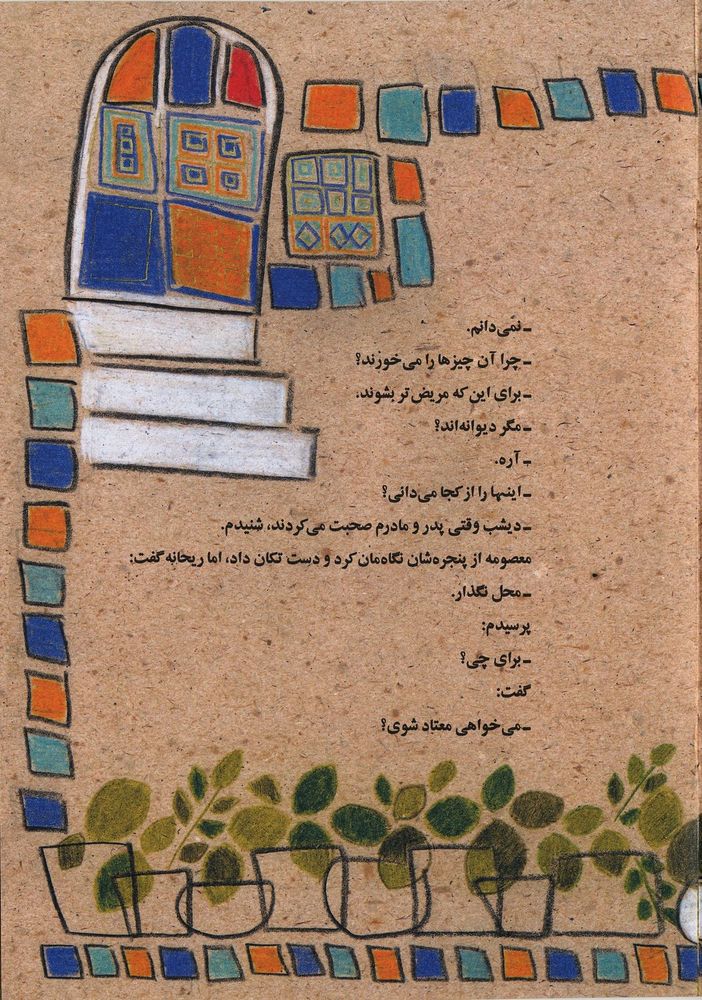 ـ نمی‌دانم.
ـ چرا آن چیزها را می‌خورند؟
ـ برای این که مریض‌تر بشوند.
ـ مگر دیوانه‌اند؟
ـ آره.
ـ اینها را از کجا می‌دانی؟
ـ دیشب وقتی پدر و مادرم صحبت می‌کردند، شنیدم.
معصومه از پنجره‌شان نگاه‌مان کرد و دست تکان داد، اما ریحانه گفت:
ـ محل نگذار.
پرسیدم:
ـ برای چی؟
گفت:
ـ می‌خواهی معتاد شوی؟